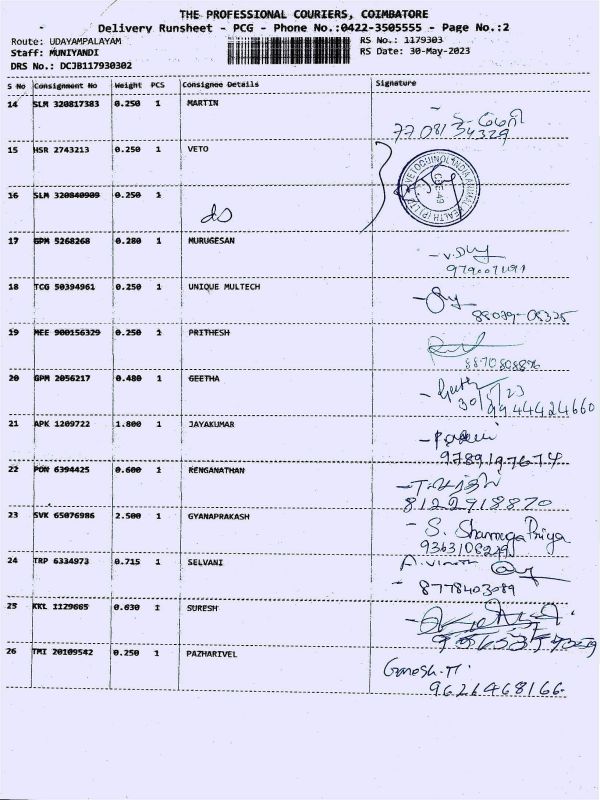 THE PROFESSIONAL COURIERS, COIMBATORE
Delivery Runsheet - PCG - Phone No.:0422-3505555 - Page No.:2
Route: UDAYAMPALAYAM RS No.: 1179303
Staff: MUNIYANDI RS Date: 30-May-2023
DRS No.: DCJB117930302
S No Consignment No Weight PCS Consignee Details Signature
14 SLM 320817383 0.250 1 MARTIN
7708134329
15 HSR 2743213 0.250 1 VETO
VETOQUINOL INDIA ANIMAL HEALTH (P) LTD
16 SLM 320840909 0.250 1 do
17 GPM 5268268 0.280 1 MURUGESAN
18 TCG 50394961 0.250 1 UNIQUE MULTECH
88079-08325
19 MEE 900156329 0.250 1 PRITHESH
8870808896
20 GPM 2056217 0.480 1 GEETHA
30/5/23
9944424660
21 APK 1209722 1.800 1 JAYAKUMAR
9789197674
22 PON 6394425 0.600 1 RENGANATHAN
8122918870
23 SVK 65076986 2.500 1 GYANAPRAKASH - S. Shanmuga Priya
9363108219
24 TRP 6334973 0.715 1 SELVANI A.vinoth
- 8778403089
25 KKL 1129665 0.630 1 SURESH
26 TMI 20109542 0.250 1 PAZHARIVEL Ganesh.M
9626468166.